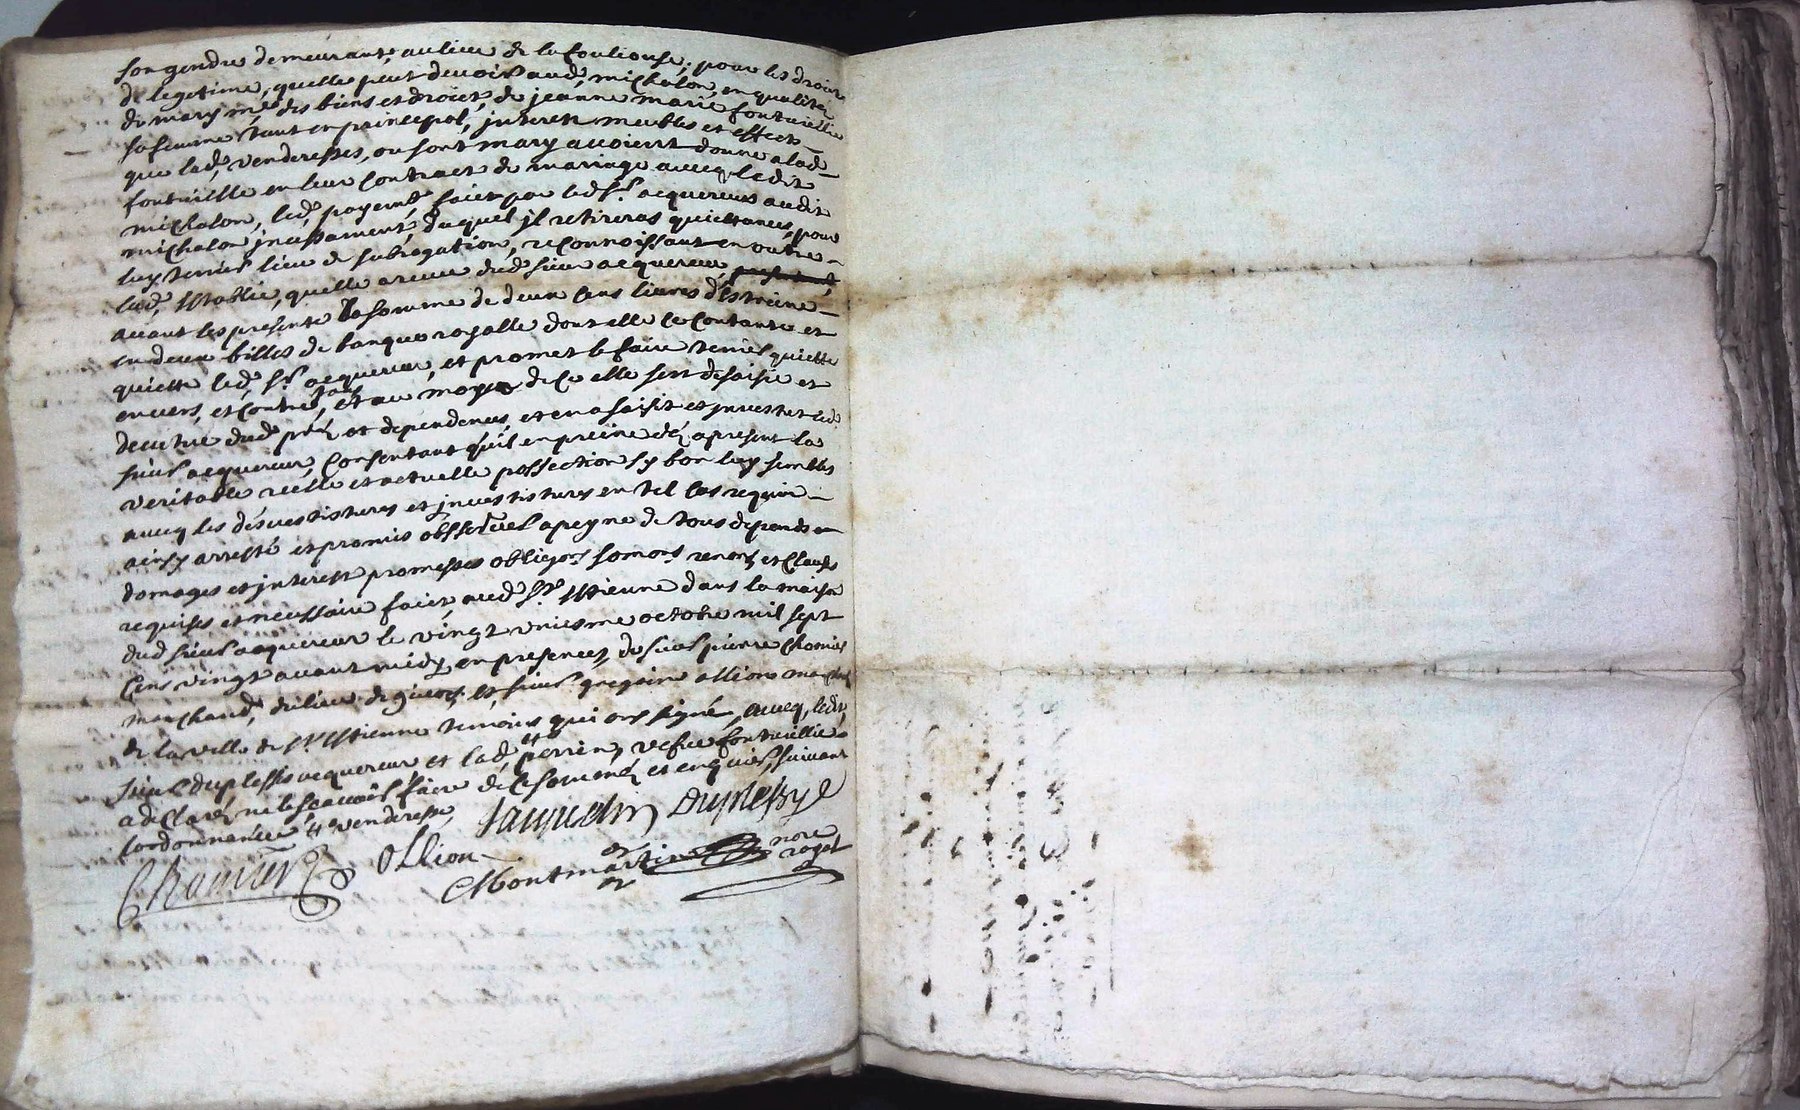 son gendre demeurant, au lieu de la fouliouse, pour les droits
de legetime, quelle peut devoir aud, michalon, en qualité
de mary m.e des biens et droiets, de jeanne marie fontvieille
sa femme tant en principal, interest meubles et effects
que lad, venderesses, ou sont mary avoient donne a lad
fontvieille en leur contract de mariage avecq ledit
michalon, led, payemt, faict par led Sr acquereur audit
michalon incessament, duquel il retireras quiettances, pour
luy tenir lieu de subrogation, reconnoissant en outre
lad, establie, quelle a receu dud, sieur acquereur,
avant les presente la somme de deux cens livres d'estreine
en deux billes de banque royalle dont elle ce contante et
quiette led, Sr acquereur, et promet le faire tenir quiette
envers, et contre tous, et au moyen de ce elle sest desaisie et
devetue dud, pré et dependences, et en a saisit et investit led
sieur acquereur, consentant qu'il en preine dez apresent la
veritable reelle et actuelle possection sy bon luy sembles
avecq les desvestitures et investitures en tel cas requise
ainsy arresté et promis obsserver a peyne de tous depends
domages et interest promesses obligons somons renons et clauses
requises et necessaire faict, aud St Estienne dans la maison
dud sieur acquereur le vingt uniesme octobre mil sept
cens vingt avant midy, en presences, de sieur pierre chomier
marchand, du lieu de et sieur gregoire ollion marchand
de la ville de St Estienne temoins qui ons signé, avecq, ledit,
sieur duplessis acquereur et lad, perrin, vefve fontvieille
a declaré ne le sçavoir faire de ce sommé et enquis, suivant
lordonnance venderesse
Jacquelin Duplessye
Chomier Ollion
Montmartin nore
royal